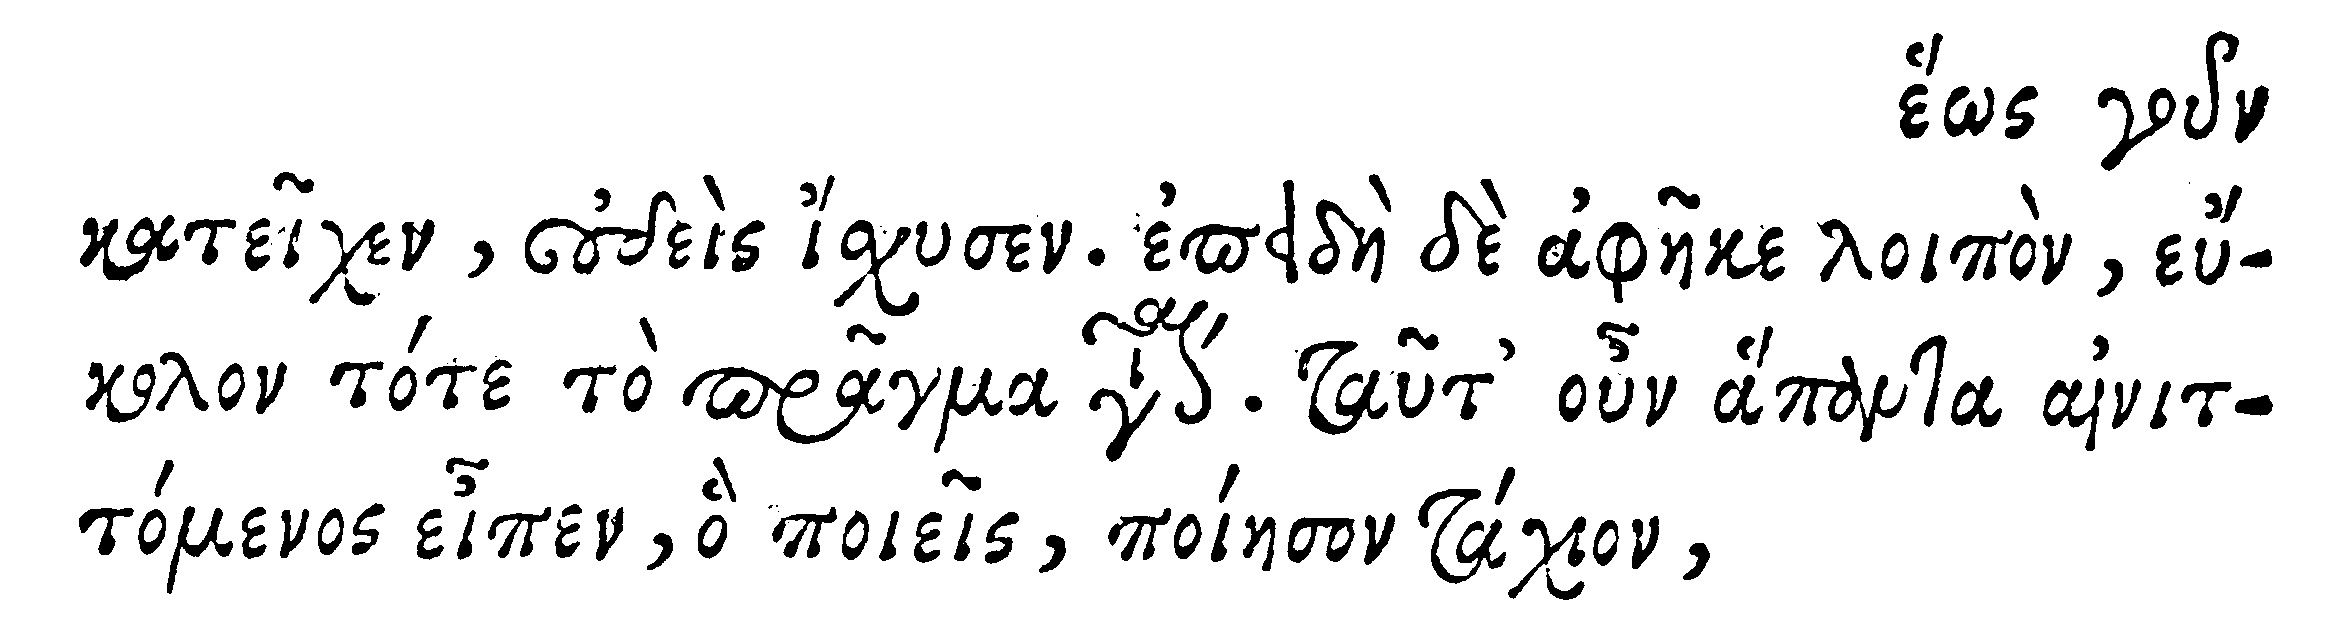 ἕως γοῦν
κατεῖχεν, οὐδεὶς ἴσχυσεν. ἐπειδὴ δὲ ἀφῆκε λοιπὸν, εὔ-
κολον τότε τὸ πρᾶγμα γίνεται. ταῦτ' οὖν ἅπαντα αἰνιτ-
τόμενος εἶπεν, ὃ ποιεῖς, ποίησον τάχιον,